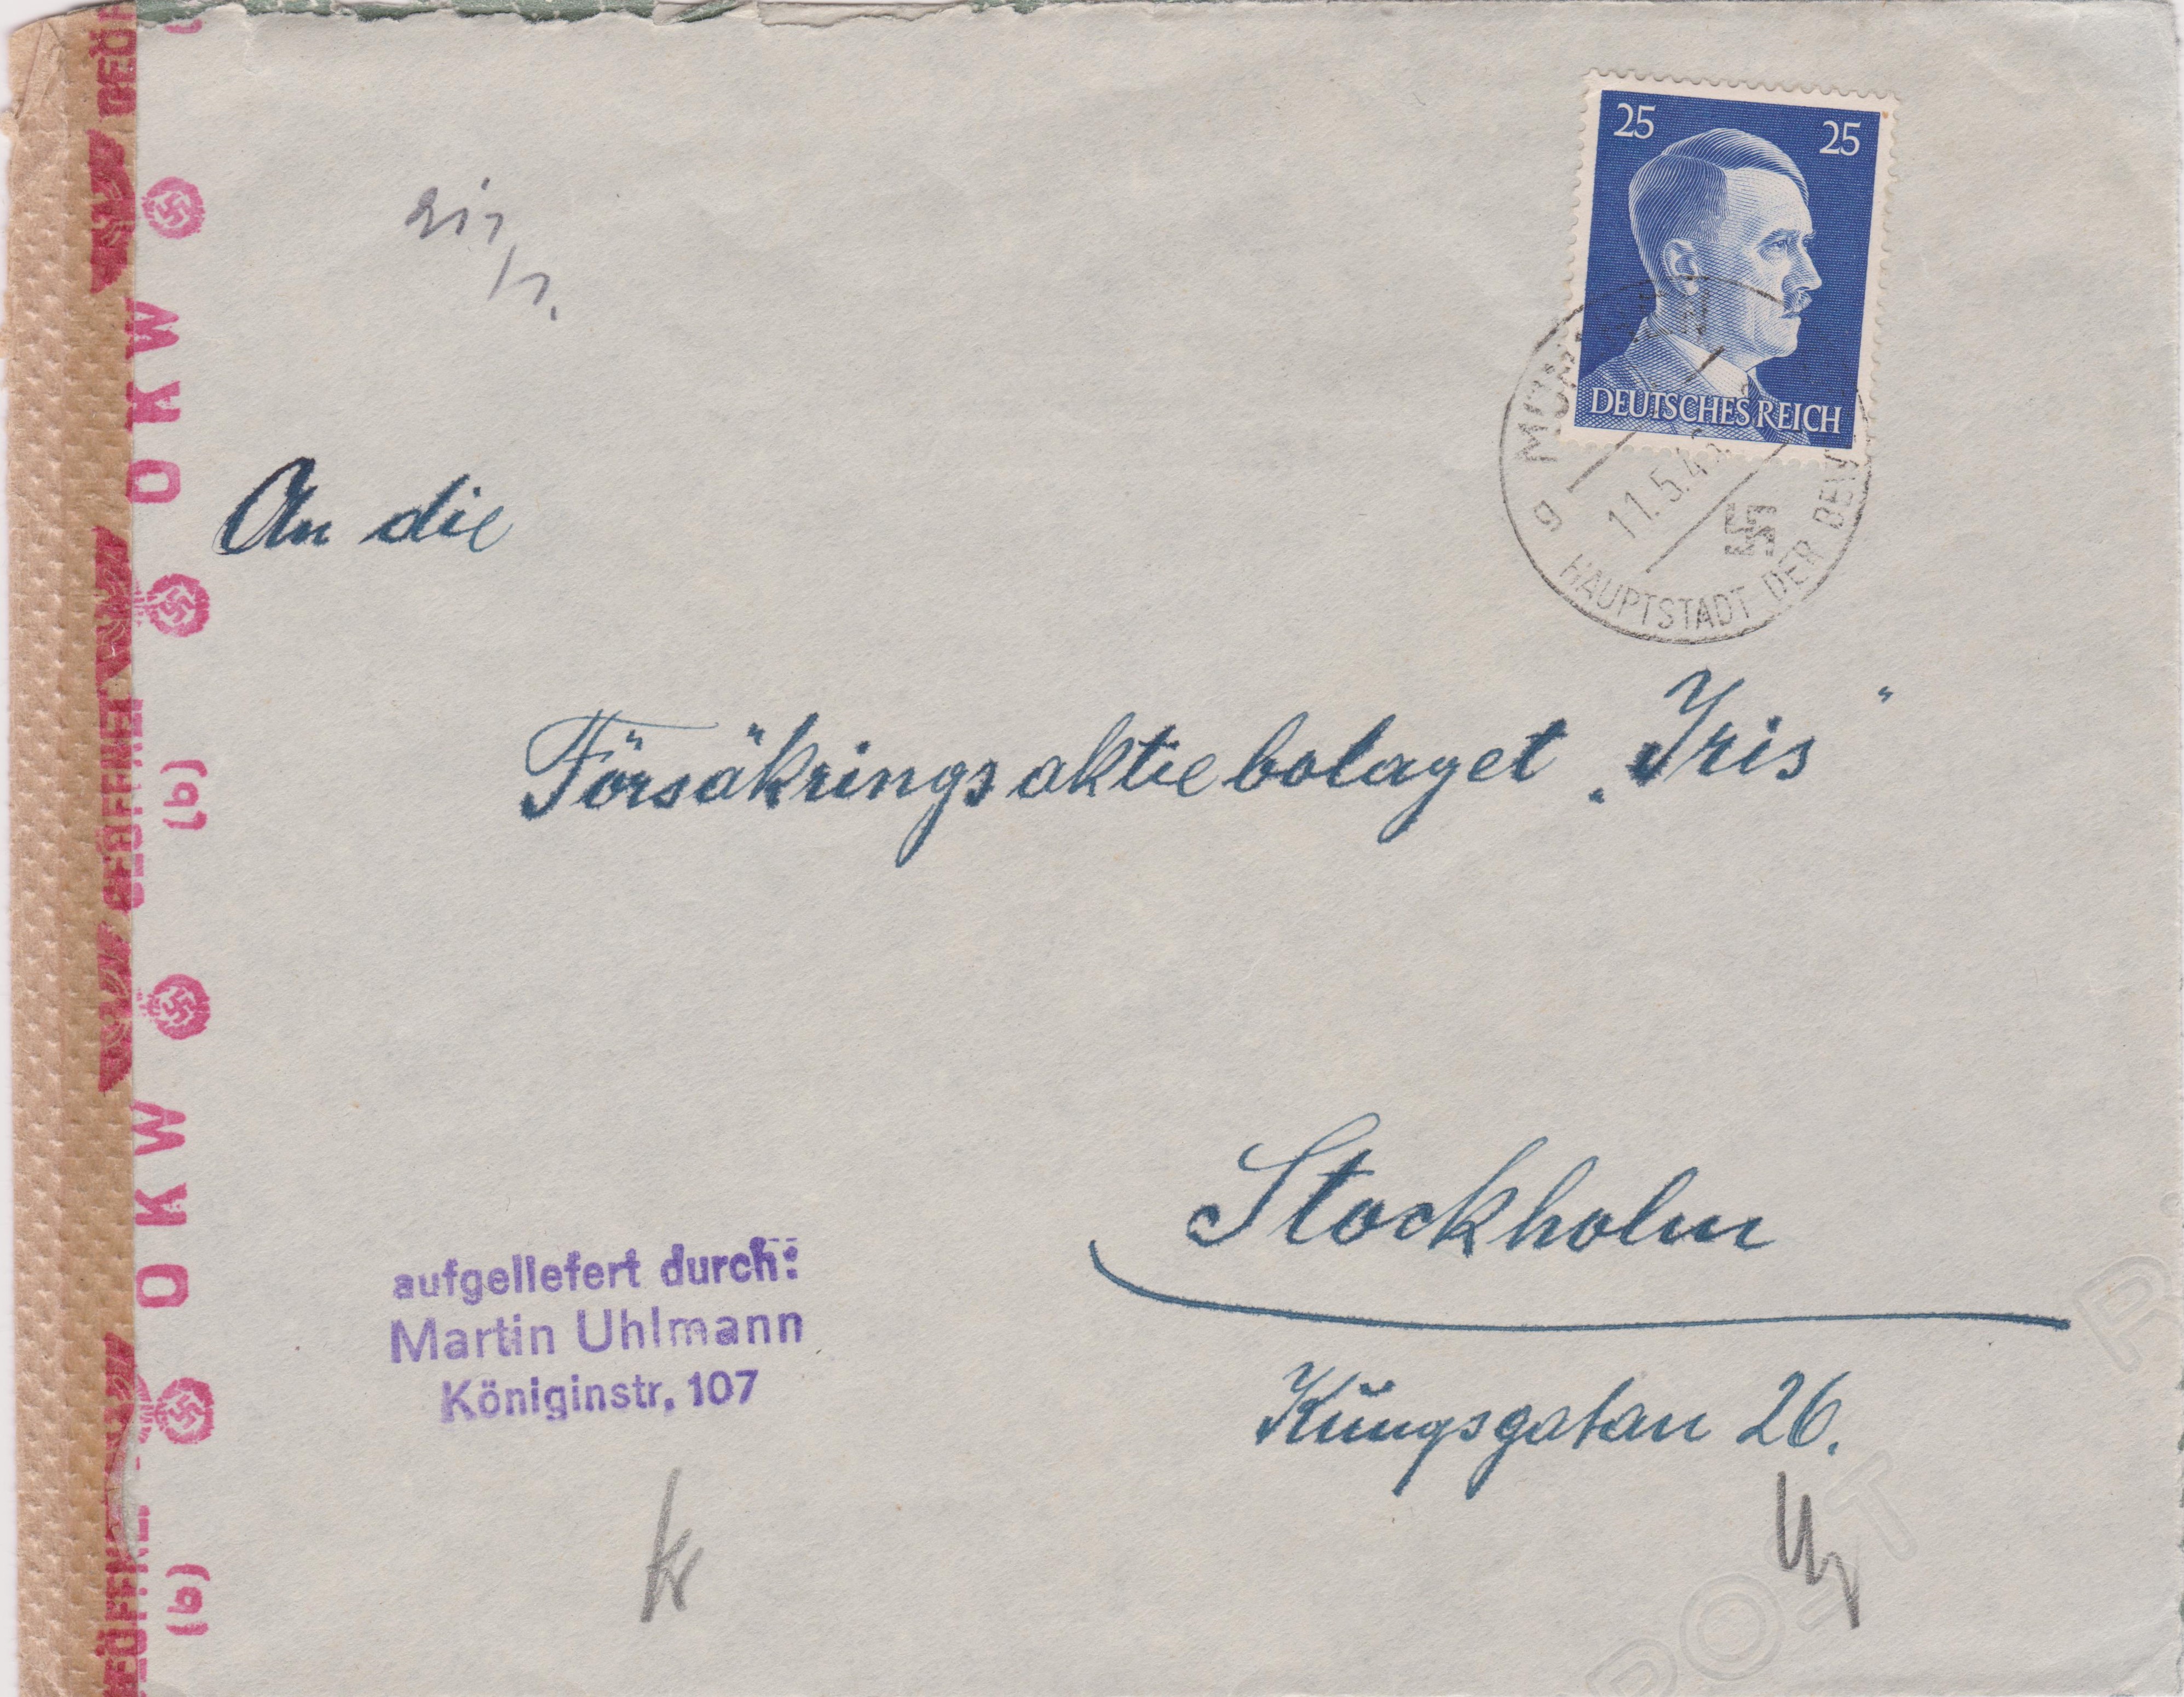 25 25
DEUTSCHES REICH
g 11.5.4
HAUPTSTADT DER BEW
An die
Försäkringsaktiebolaget „Iris“
Stockholm
Kŭngsgatan 26.
aufgeliefert durch:
Martin Uhlmann
Königinstr. 107
kr
GEÖFFNET
OKW
OKW
(b)
(b)
GEÖFFNE
POST